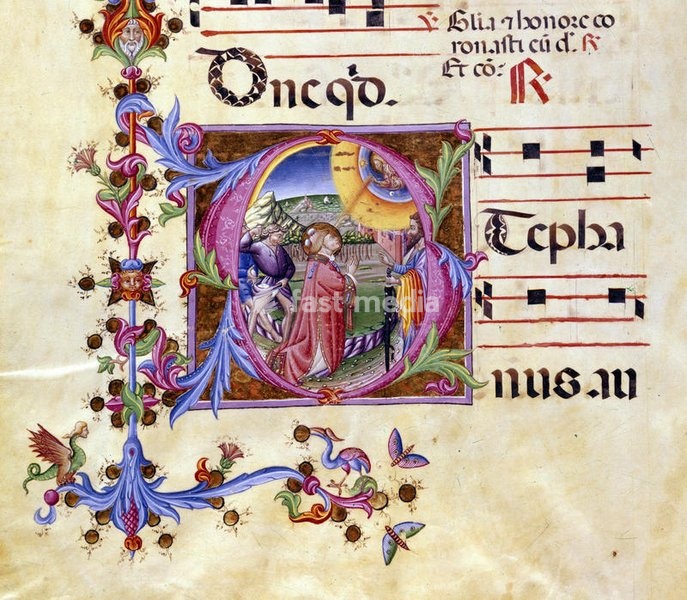 ℣. Glia ⁊ honore co
ronasti eū d̄. ℟
Et cō. ℟
One q̄d.
fast media
Tepha
nus. au